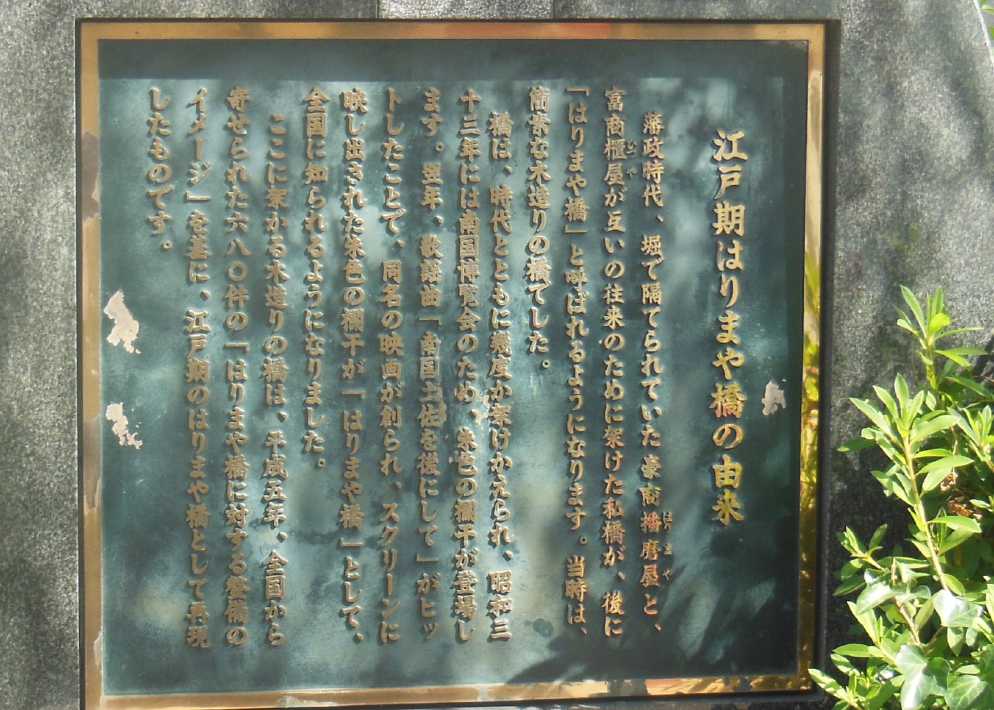 江戸期はりまや橋の由来
藩政時代、堀で隔てられていた豪商播磨屋と、
富商櫃屋が互いの往来のために架けた私橋が、後に
「はりまや橋」と呼ばれるようになります。当時は、
簡素な木造りの橋でした。
橋は、時代とともに幾度か架けかえられ、昭和三
十三年には南国博覧会のため、朱色の欄干が登場し
ます。翌年、歌謡曲「南国土佐を後にして」がヒッ
トしたことで、同名の映画が創られ、スクリーンに
映し出された朱色の欄干が「はりまや橋」として、
全国に知られるようになりました。
ここに架かる木造りの橋は、平成五年、全国から
寄せられた六八〇件の「はりまや橋に対する整備の
イメージ」を基に、江戸期のはりまや橋として再現
したものです。